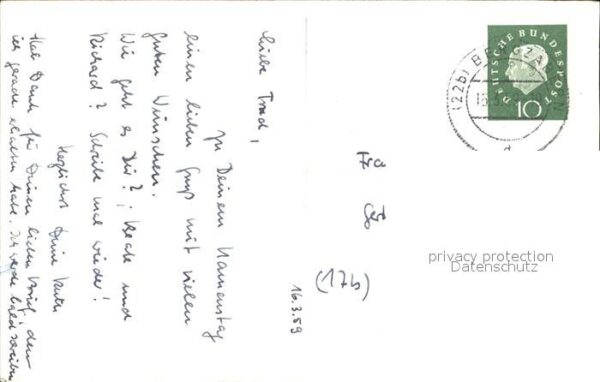 Liebe Trud,
zu Deinem Namenstag
einen lieben Gruß mit vielen
guten Wünschen.
Wie geht es Dir?, Beate und
Richard? Schreibe mal wieder!
Herzlichst Deine
Hab Dank für Deinen lieben Brief, den
ich gerade erhalten habe. Ich werde bald schreiben
16.3.59
DEUTSCHE BUNDESPOST
10
(22b)
Frau
Gert
(17b)
privacy protection
Datenschutz